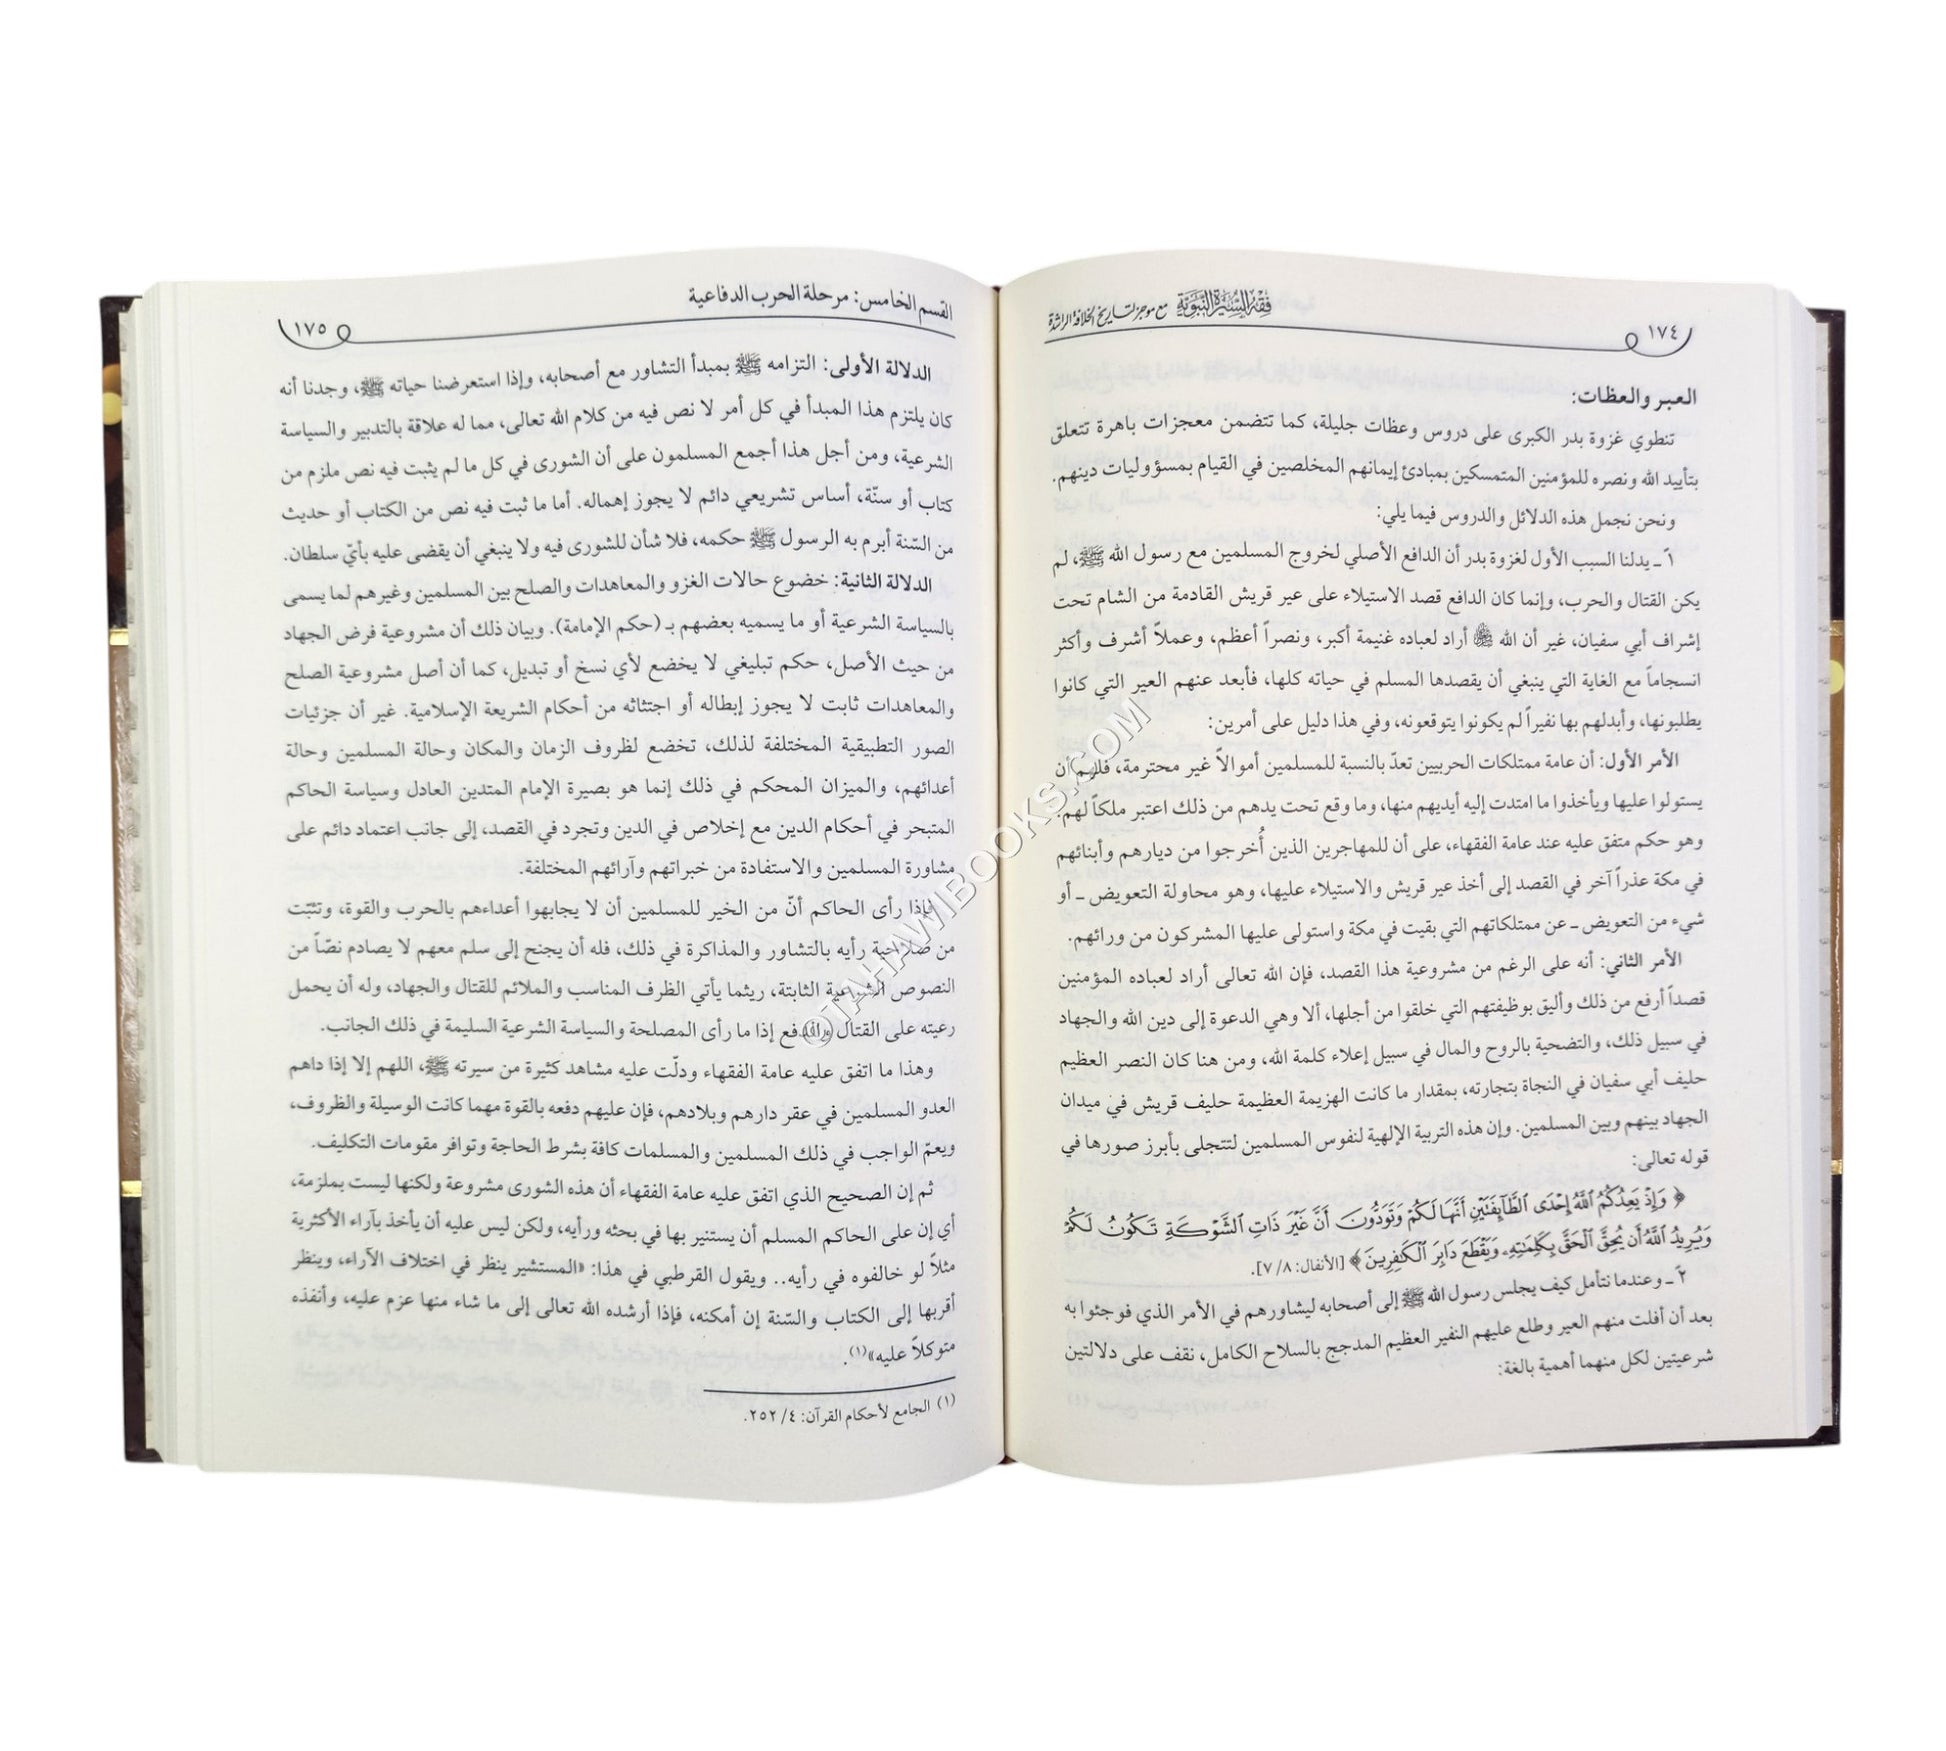 ١٧٤
فقه السيرة النبوية مع موجز لتاريخ الخلافة الراشدة
العبر والعظات:
تنطوي غزوة بدر الكبرى على دروس وعظات جليلة، كما تتضمن معجزات باهرة تتعلق
بتأييد الله ونصره للمؤمنين المتمسكين بمبادئ إيمانهم المخلصين في القيام بمسؤوليات دينهم.
ونحن نجمل هذه الدلائل والدروس فيما يلي:
١ً ـ يدلنا السبب الأول لغزوة بدر أن الدافع الأصلي لخروج المسلمين مع رسول الله ﷺ، لم
يكن القتال والحرب، وإنما كان الدافع قصد الاستيلاء على عير قريش القادمة من الشام تحت
إشراف أبي سفيان، غير أن الله ﷻ أراد لعباده غنيمة أكبر، ونصراً أعظم، وعملاً أشرف وأكثر
انسجاماً مع الغاية التي ينبغي أن يقصدها المسلم في حياته كلها، فأبعد عنهم العير التي كانوا
يطلبونها، وأبدلهم بها نفيراً لم يكونوا يتوقعونه، وفي هذا دليل على أمرين:
الأمر الأول: أن عامة ممتلكات الحربيين تعدّ بالنسبة للمسلمين أموالاً غير محترمة، فلهم أن
يستولوا عليها ويأخذوا ما امتدت إليه أيديهم منها، وما وقع تحت يدهم من ذلك اعتبر ملكاً لهم.
وهو حكم متفق عليه عند عامة الفقهاء، على أن للمهاجرين الذين أُخرجوا من ديارهم وأبنائهم
في مكة عذراً آخر في القصد إلى أخذ عير قريش والاستيلاء عليها، وهو محاولة التعويض ـ أو
شيء من التعويض ـ عن ممتلكاتهم التي بقيت في مكة واستولى عليها المشركون من ورائهم.
الأمر الثاني: أنه على الرغم من مشروعية هذا القصد، فإن الله تعالى أراد لعباده المؤمنين
قصداً أرفع من ذلك وأليق بوظيفتهم التي خلقوا من أجلها، ألا وهي الدعوة إلى دين الله والجهاد
في سبيل ذلك، والتضحية بالروح والمال في سبيل إعلاء كلمة الله، ومن هنا كان النصر العظيم
حليف أبي سفيان في النجاة بتجارته، بمقدار ما كانت الهزيمة العظيمة حليف قريش في ميدان
الجهاد بينهم وبين المسلمين. وإن هذه التربية الإلهية لنفوس المسلمين لتتجلى بأبرز صورها في
قوله تعالى:
﴿ وَإِذْ يَعِدُكُمُ ٱللَّهُ إِحْدَى ٱلطَّآئِفَتَيْنِ أَنَّهَا لَكُمْ وَتَوَدُّونَ أَنَّ غَيْرَ ذَاتِ ٱلشَّوْكَةِ تَكُونُ لَكُمْ
وَيُرِيدُ ٱللَّهُ أَن يُحِقَّ ٱلْحَقَّ بِكَلِمَٰتِهِۦ وَيَقْطَعَ دَابِرَ ٱلْكَٰفِرِينَ ﴾ [الأنفال: ٨/ ٧].
٢ً ـ وعندما نتأمل كيف يجلس رسول الله ﷺ إلى أصحابه ليشاورهم في الأمر الذي فوجئوا به
بعد أن أفلت منهم العير وطلع عليهم النفير العظيم المدجج بالسلاح الكامل، نقف على دلالتين
شرعيتين لكل منهما أهمية بالغة:
القسم الخامس: مرحلة الحرب الدفاعية
١٧٥
الدلالة الأولى: التزامه ﷺ بمبدأ التشاور مع أصحابه، وإذا استعرضنا حياته ﷺ، وجدنا أنه
كان يلتزم هذا المبدأ في كل أمر لا نص فيه من كلام الله تعالى، مما له علاقة بالتدبير والسياسة
الشرعية، ومن أجل هذا أجمع المسلمون على أن الشورى في كل ما لم يثبت فيه نص ملزم من
كتاب أو سنّة، أساس تشريعي دائم لا يجوز إهماله. أما ما ثبت فيه نص من الكتاب أو حديث
من السّنة أبرم به الرسول ﷺ حكمه، فلا شأن للشورى فيه ولا ينبغي أن يقضى عليه بأيّ سلطان.
الدلالة الثانية: خضوع حالات الغزو والمعاهدات والصلح بين المسلمين وغيرهم لما يسمى
بالسياسة الشرعية أو ما يسميه بعضهم بـ (حكم الإمامة). وبيان ذلك أن مشروعية فرض الجهاد
من حيث الأصل، حكم تبليغي لا يخضع لأي نسخ أو تبديل، كما أن أصل مشروعية الصلح
والمعاهدات ثابت لا يجوز إبطاله أو اجتثاثه من أحكام الشريعة الإسلامية. غير أن جزئيات
الصور التطبيقية المختلفة لذلك، تخضع لظروف الزمان والمكان وحالة المسلمين وحالة
أعدائهم، والميزان المحكم في ذلك إنما هو بصيرة الإمام المتدين العادل وسياسة الحاكم
المتبحر في أحكام الدين مع إخلاص في الدين وتجرد في القصد، إلى جانب اعتماد دائم على
مشاورة المسلمين والاستفادة من خبراتهم وآرائهم المختلفة.
فإذا رأى الحاكم أنّ من الخير للمسلمين أن لا يجابهوا أعداءهم بالحرب والقوة، وتثبّت
من صلاحية رأيه بالتشاور والمذاكرة في ذلك، فله أن يجنح إلى سلم معهم لا يصادم نصّاً من
النصوص الشرعية الثابتة، ريثما يأتي الظرف المناسب والملائم للقتال والجهاد، وله أن يحمل
رعيته على القتال والدفع إذا ما رأى المصلحة والسياسة الشرعية السليمة في ذلك الجانب.
وهذا ما اتفق عليه عامة الفقهاء ودلّت عليه مشاهد كثيرة من سيرته ﷺ، اللهم إلا إذا داهم
العدو المسلمين في عقر دارهم وبلادهم، فإن عليهم دفعه بالقوة مهما كانت الوسيلة والظروف،
ويعمّ الواجب في ذلك المسلمين والمسلمات كافة بشرط الحاجة وتوافر مقومات التكليف.
ثم إن الصحيح الذي اتفق عليه عامة الفقهاء أن هذه الشورى مشروعة ولكنها ليست بملزمة،
أي إن على الحاكم المسلم أن يستنير بها في بحثه ورأيه، ولكن ليس عليه أن يأخذ بآراء الأكثرية
مثلاً لو خالفوه في رأيه.. ويقول القرطبي في هذا: «المستشير ينظر في اختلاف الآراء، وينظر
أقربها إلى الكتاب والسّنة إن أمكنه، فإذا أرشده الله تعالى إلى ما شاء منها عزم عليه، وأنفذه
متوكلاً عليه»(١).
(١) الجامع لأحكام القرآن: ٤/ ٢٥٢.
©TAHAWIBOOKS.COM